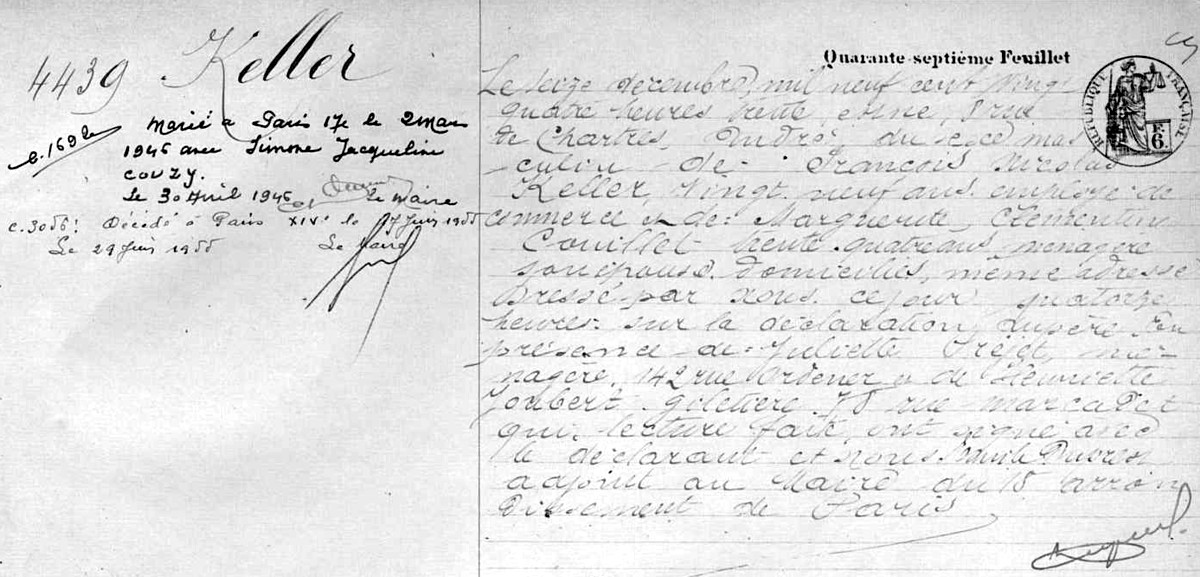 4439 Keller
c.1692
Marié à Paris 17e le 2 Mars
1946 avec Simone Jacqueline
Couzy.
Le 30 Avril 1946 Le Maire
c.3056! Décédé à Paris XIVe le 17 Juin 1955
Le 29 Juin 1955 Le Maire
Quarante-septième Feuillet
RÉPUBLIQUE FRANÇAISE
6
Le seize décembre, mil neuf cent vingt
quatre heures trente, est né, 8 rue
de Chartres, André, du sexe mas
culin de François Nicolas
Keller, vingt neuf ans, employé de
commerce et de Marguerite Clémentine
Couillet trente quatre ans, ménagère
son épouse, domiciliés, même adresse
Dressé par nous ce jour quatorze
heures sur la déclaration du père en
présence de Juliette mé-
nagère, 142 rue Ordener et de Henriette
Joubert giletière 78 rue Marcadet
qui, lecture faite, ont signé avec
le déclarant et nous
adjoint au Maire du 18 arron
dissement de Paris